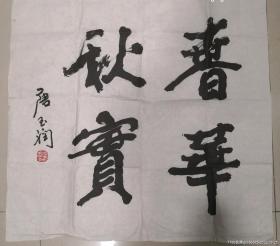 春華
秋實
唐玉润